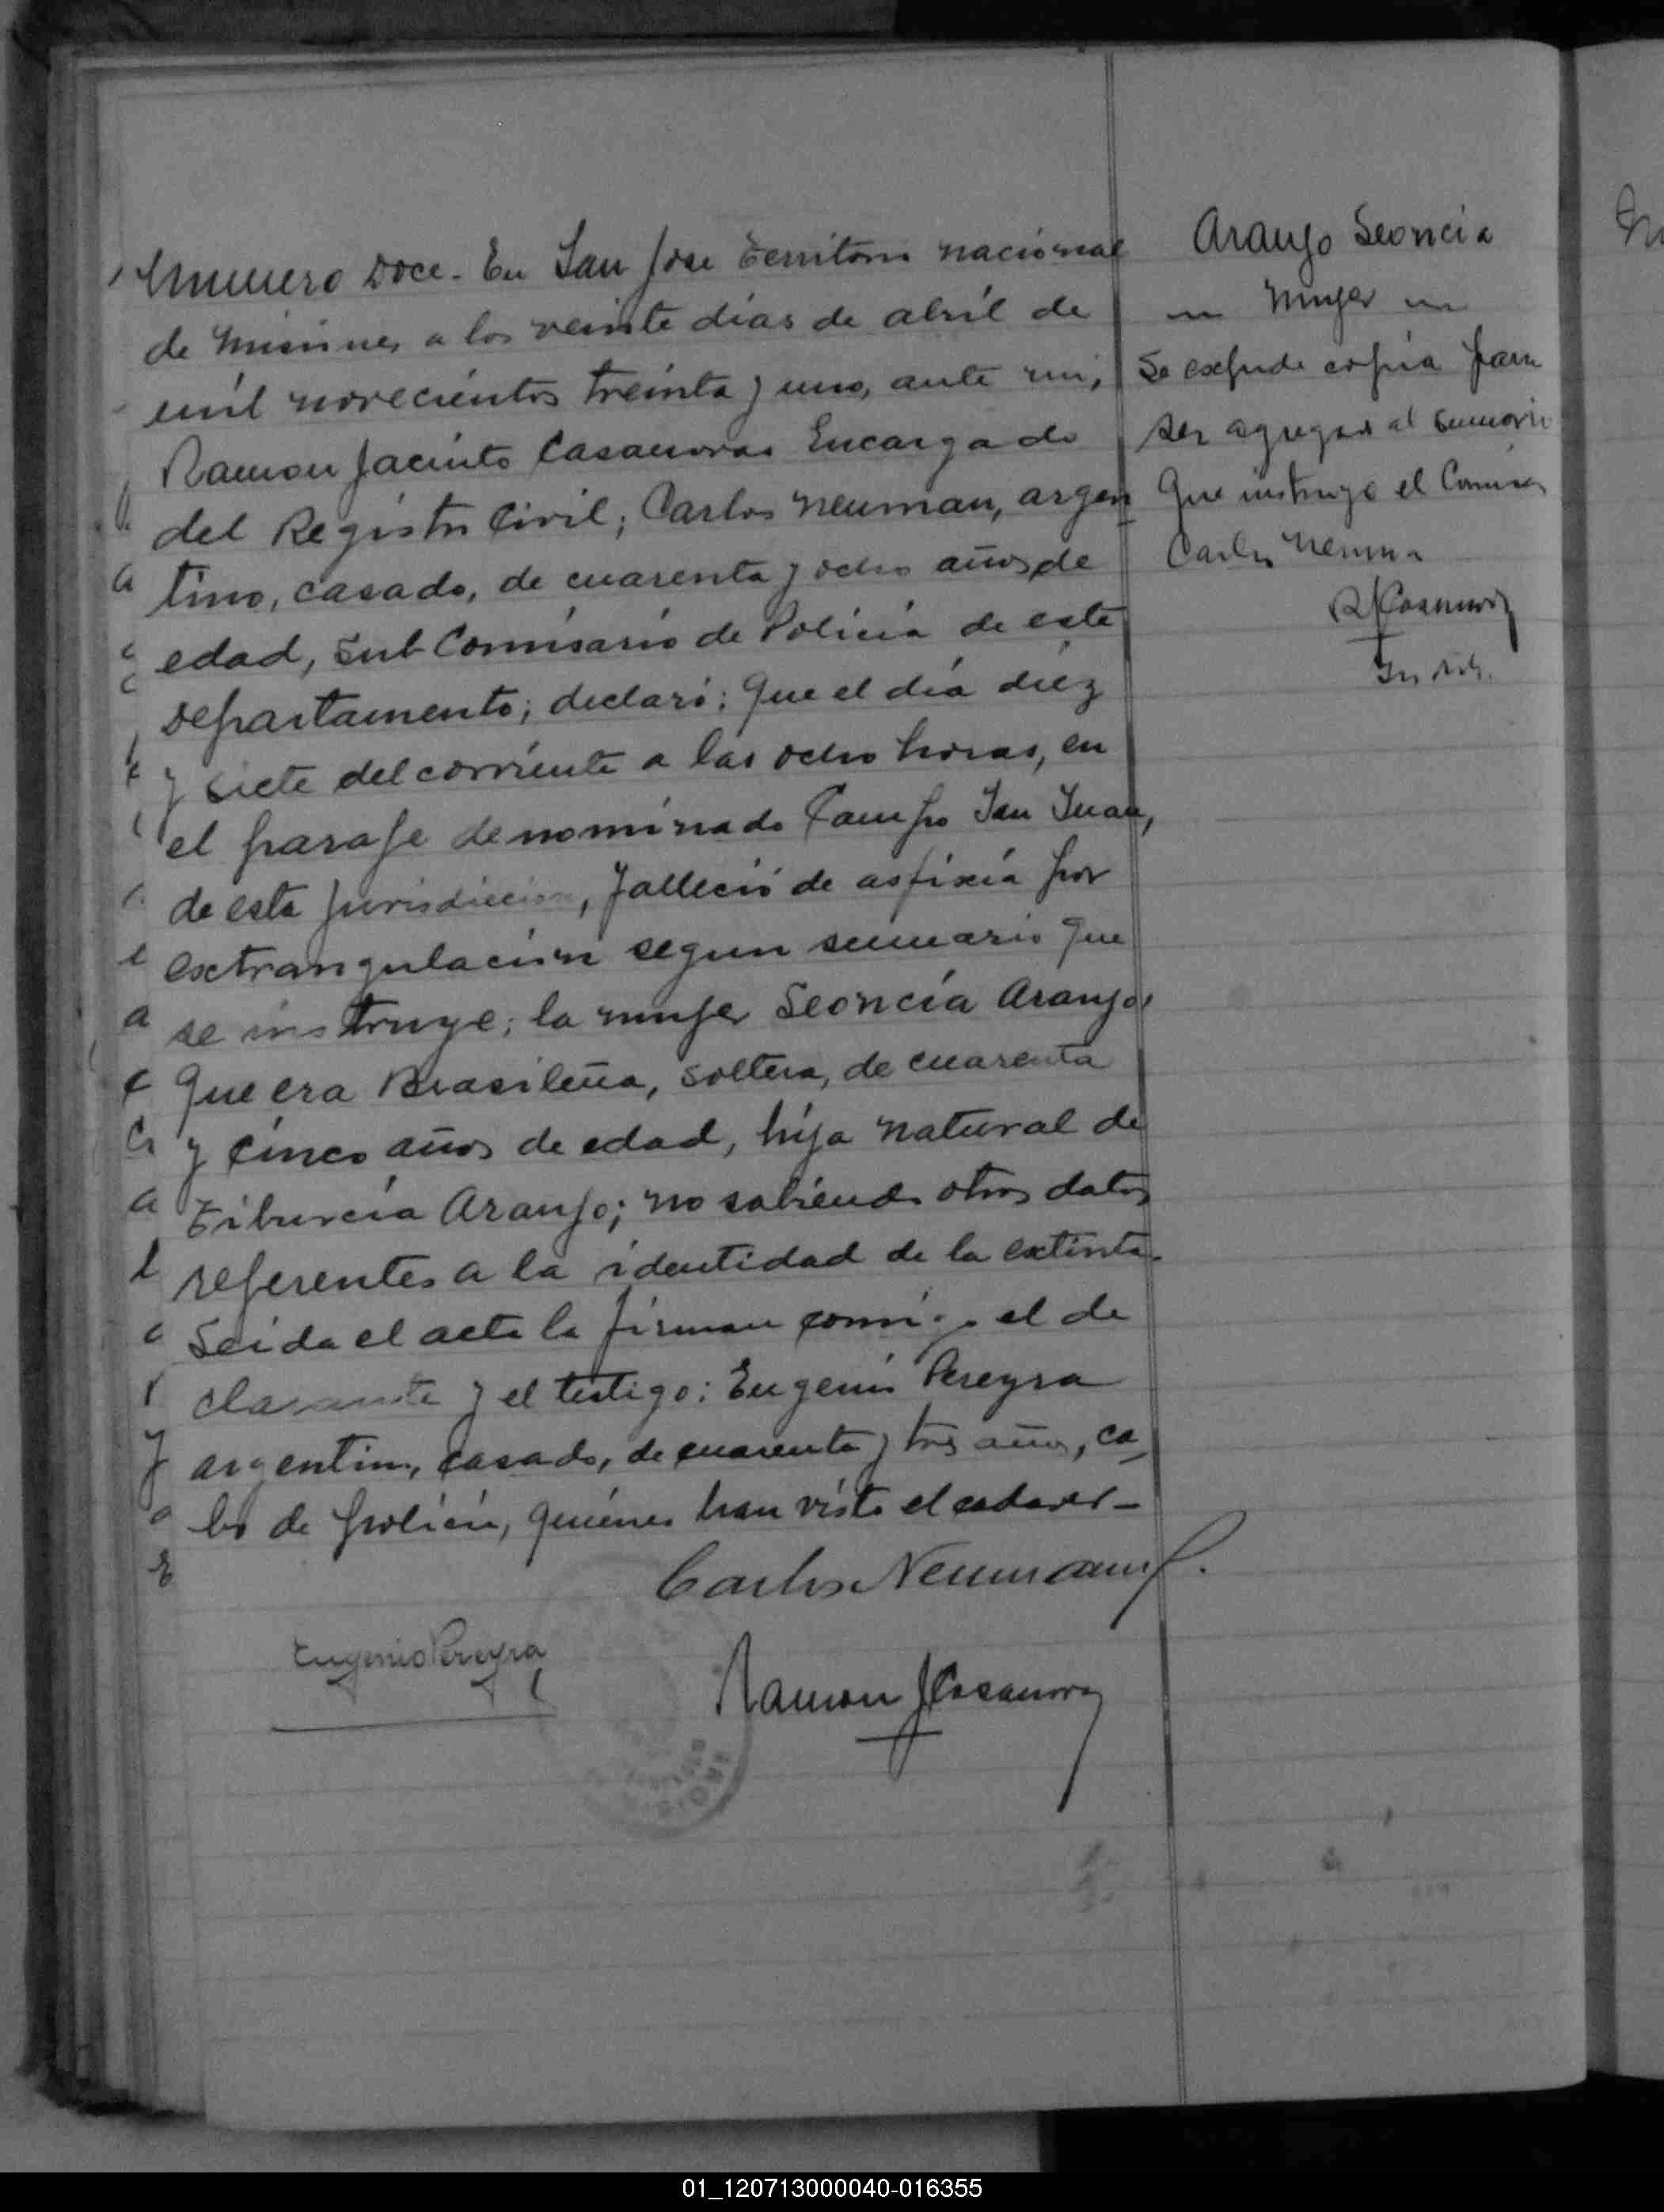 Numero Doce. En San Jose Territorio nacional
de Misiones a los veinte días de abril de
mil novecientos treinta y uno, ante mi,
Ramon Jacinto Casanovas Encargado
del Registro Civil; Carlos Neuman, argen
tino, casado, de cuarenta y ocho años de
edad, Sub Comisario de Policia de este
Departamento; declaró: Que el día diéz
y siete del corriente a las ocho horas, en
el paraje denominado Campo San Juan,
de esta jurisdiccion, falleció de asfixia por
extrangulación segun sumario que
se instruye; la mujer Leoncia Araujo,
que era Brasileña, soltera, de cuarenta
y cinco años de edad, hija natural de
Tiburcia Araujo; no sabiendo otros datos
referentes a la identidad de la extinta.
Leida el acta la firman conmigo el de
clarante y el testigo: Eugenio Pereyra
argentino, casado, de cuarenta y tres años, ca
bo de policia, quienes han visto el cadaver-
Carlos Neumann
Eugenio Pereyra
Ramon J Casanovas
Araujo Leoncia
Mujer
Se expide copia para
ser agregada al sumario
que instruye el Comisario
Carlos Neuman
R J Casanovas
01_120713000040-016355